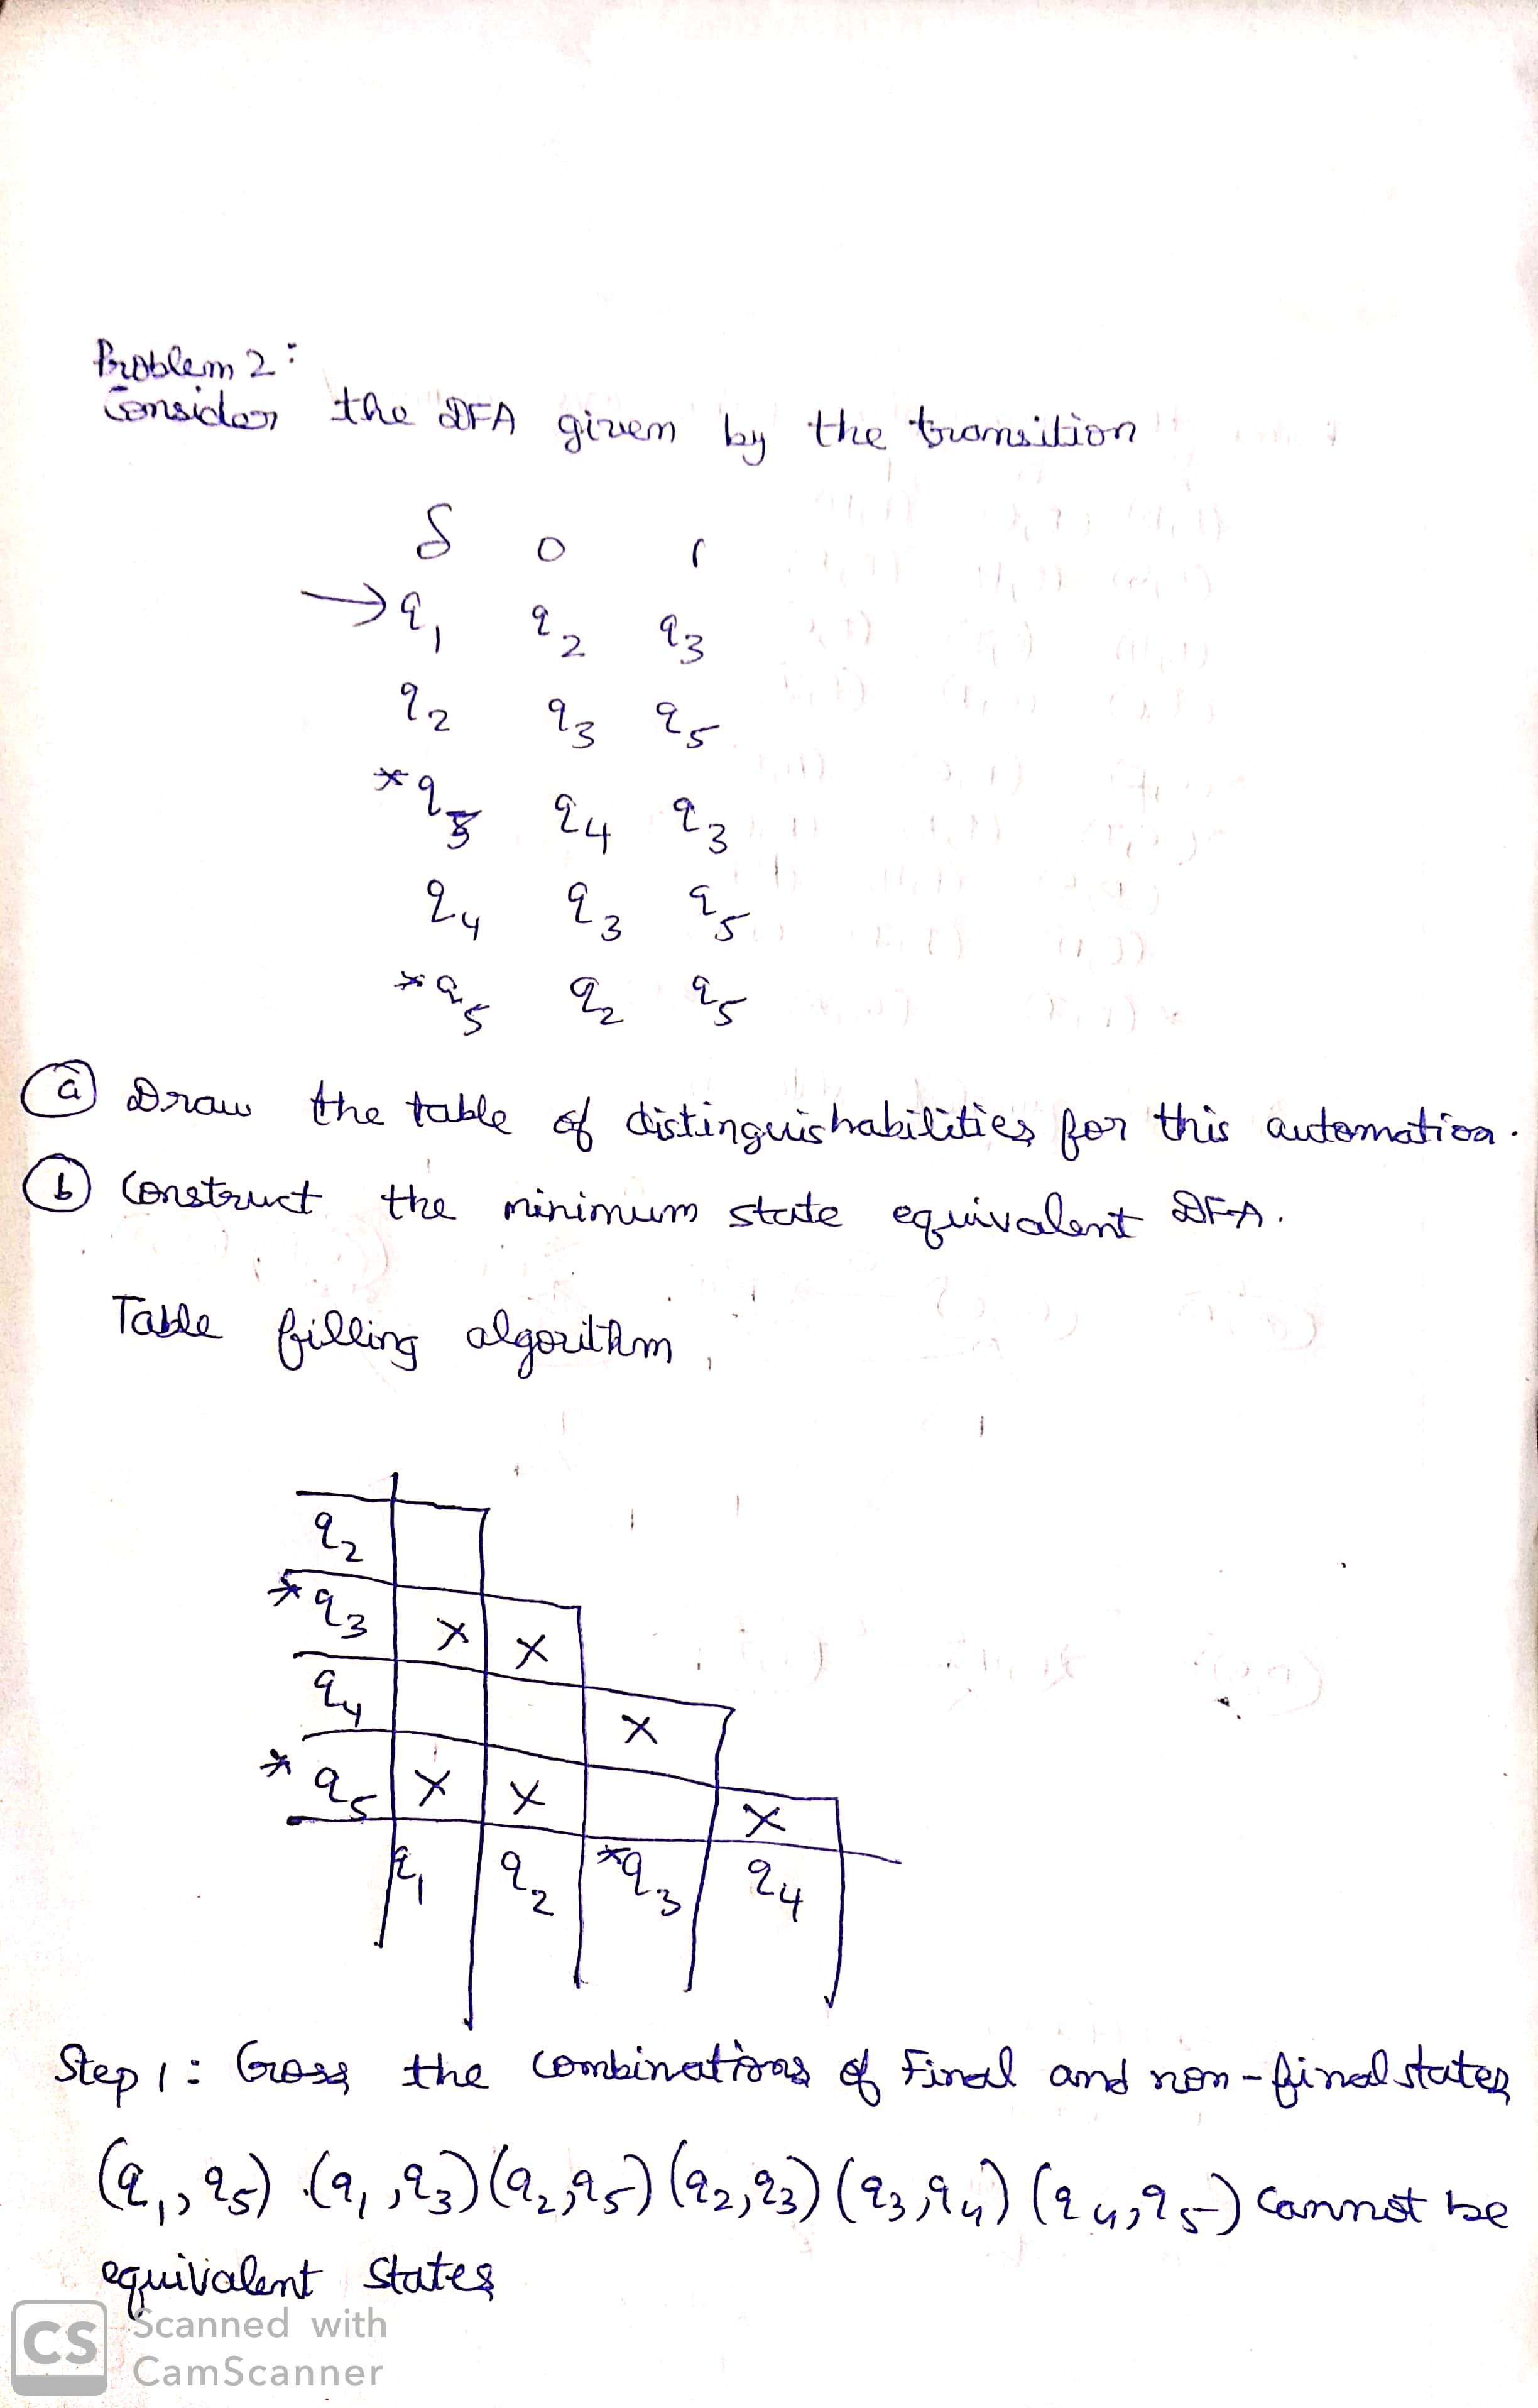 Problem 2:
Consider the DFA given by the transition
δ 0 1
→q1 q2 q3
q2 q3 q5
*q3 q4 q3
q4 q3 q5
*q5 q2 q5
(a) Draw the table of distinguishabilities for this automation.
(b) Construct the minimum state equivalent DFA.
Table filling algorithm
q2
*q3 X X
q4 X
*q5 X X X
q1 q2 *q3 q4
Step 1: Cross the combinations of Final and non-final states
(q1, q5) (q1, q3) (q2, q5) (q2, q3) (q3, q4) (q4, q5) cannot be
equivalent states
CS Scanned with
CamScanner